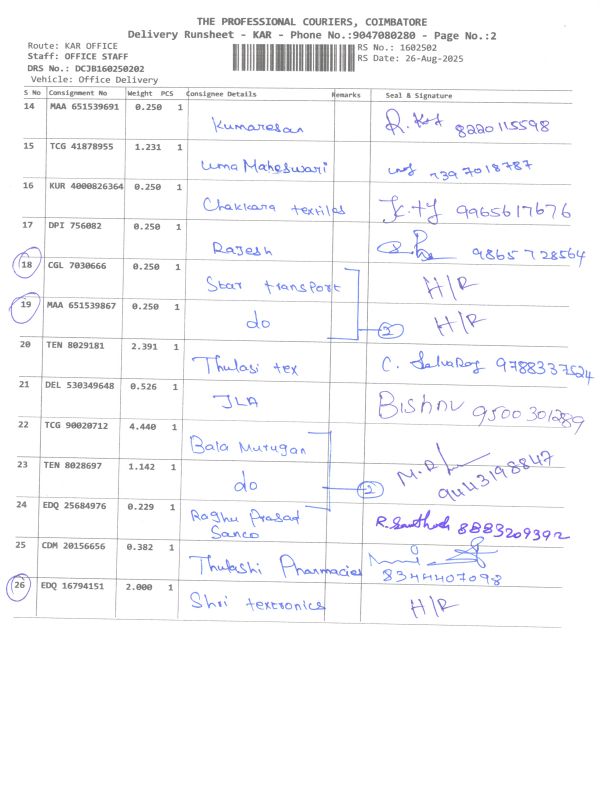 THE PROFESSIONAL COURIERS, COIMBATORE
Delivery Runsheet - KAR - Phone No.:9047080280 - Page No.:2
Route: KAR OFFICE
Staff: OFFICE STAFF
DRS No.: DCJB160250202
Vehicle: Office Delivery
RS No.: 1602502
RS Date: 26-Aug-2025
S No Consignment No Weight PCS Consignee Details Remarks Seal & Signature
14 MAA 651539691 0.250 1 Kumaresan 8220115598
15 TCG 41878955 1.231 1 Uma Maheswari 7397018787
16 KUR 4000826364 0.250 1 Chakkara textiles 9965617676
17 DPI 756082 0.250 1 Rajesh 9865728564
18 CGL 7030666 0.250 1 Star transport H/R
19 MAA 651539867 0.250 1 do 2 H/R
20 TEN 8029181 2.391 1 Thulasi tex 9788337524
21 DEL 530349648 0.526 1 JLA Bishnu 9500301289
22 TCG 90020712 4.440 1 Bala Murugan
23 TEN 8028697 1.142 1 do 2 9443198847
24 EDQ 25684976 0.229 1 Raghu Prasad 8883209392
Sanco
25 CDM 20156656 0.382 1 Thulashi Pharmacies 8344407098
26 EDQ 16794151 2.000 1 Shri textronics H/R